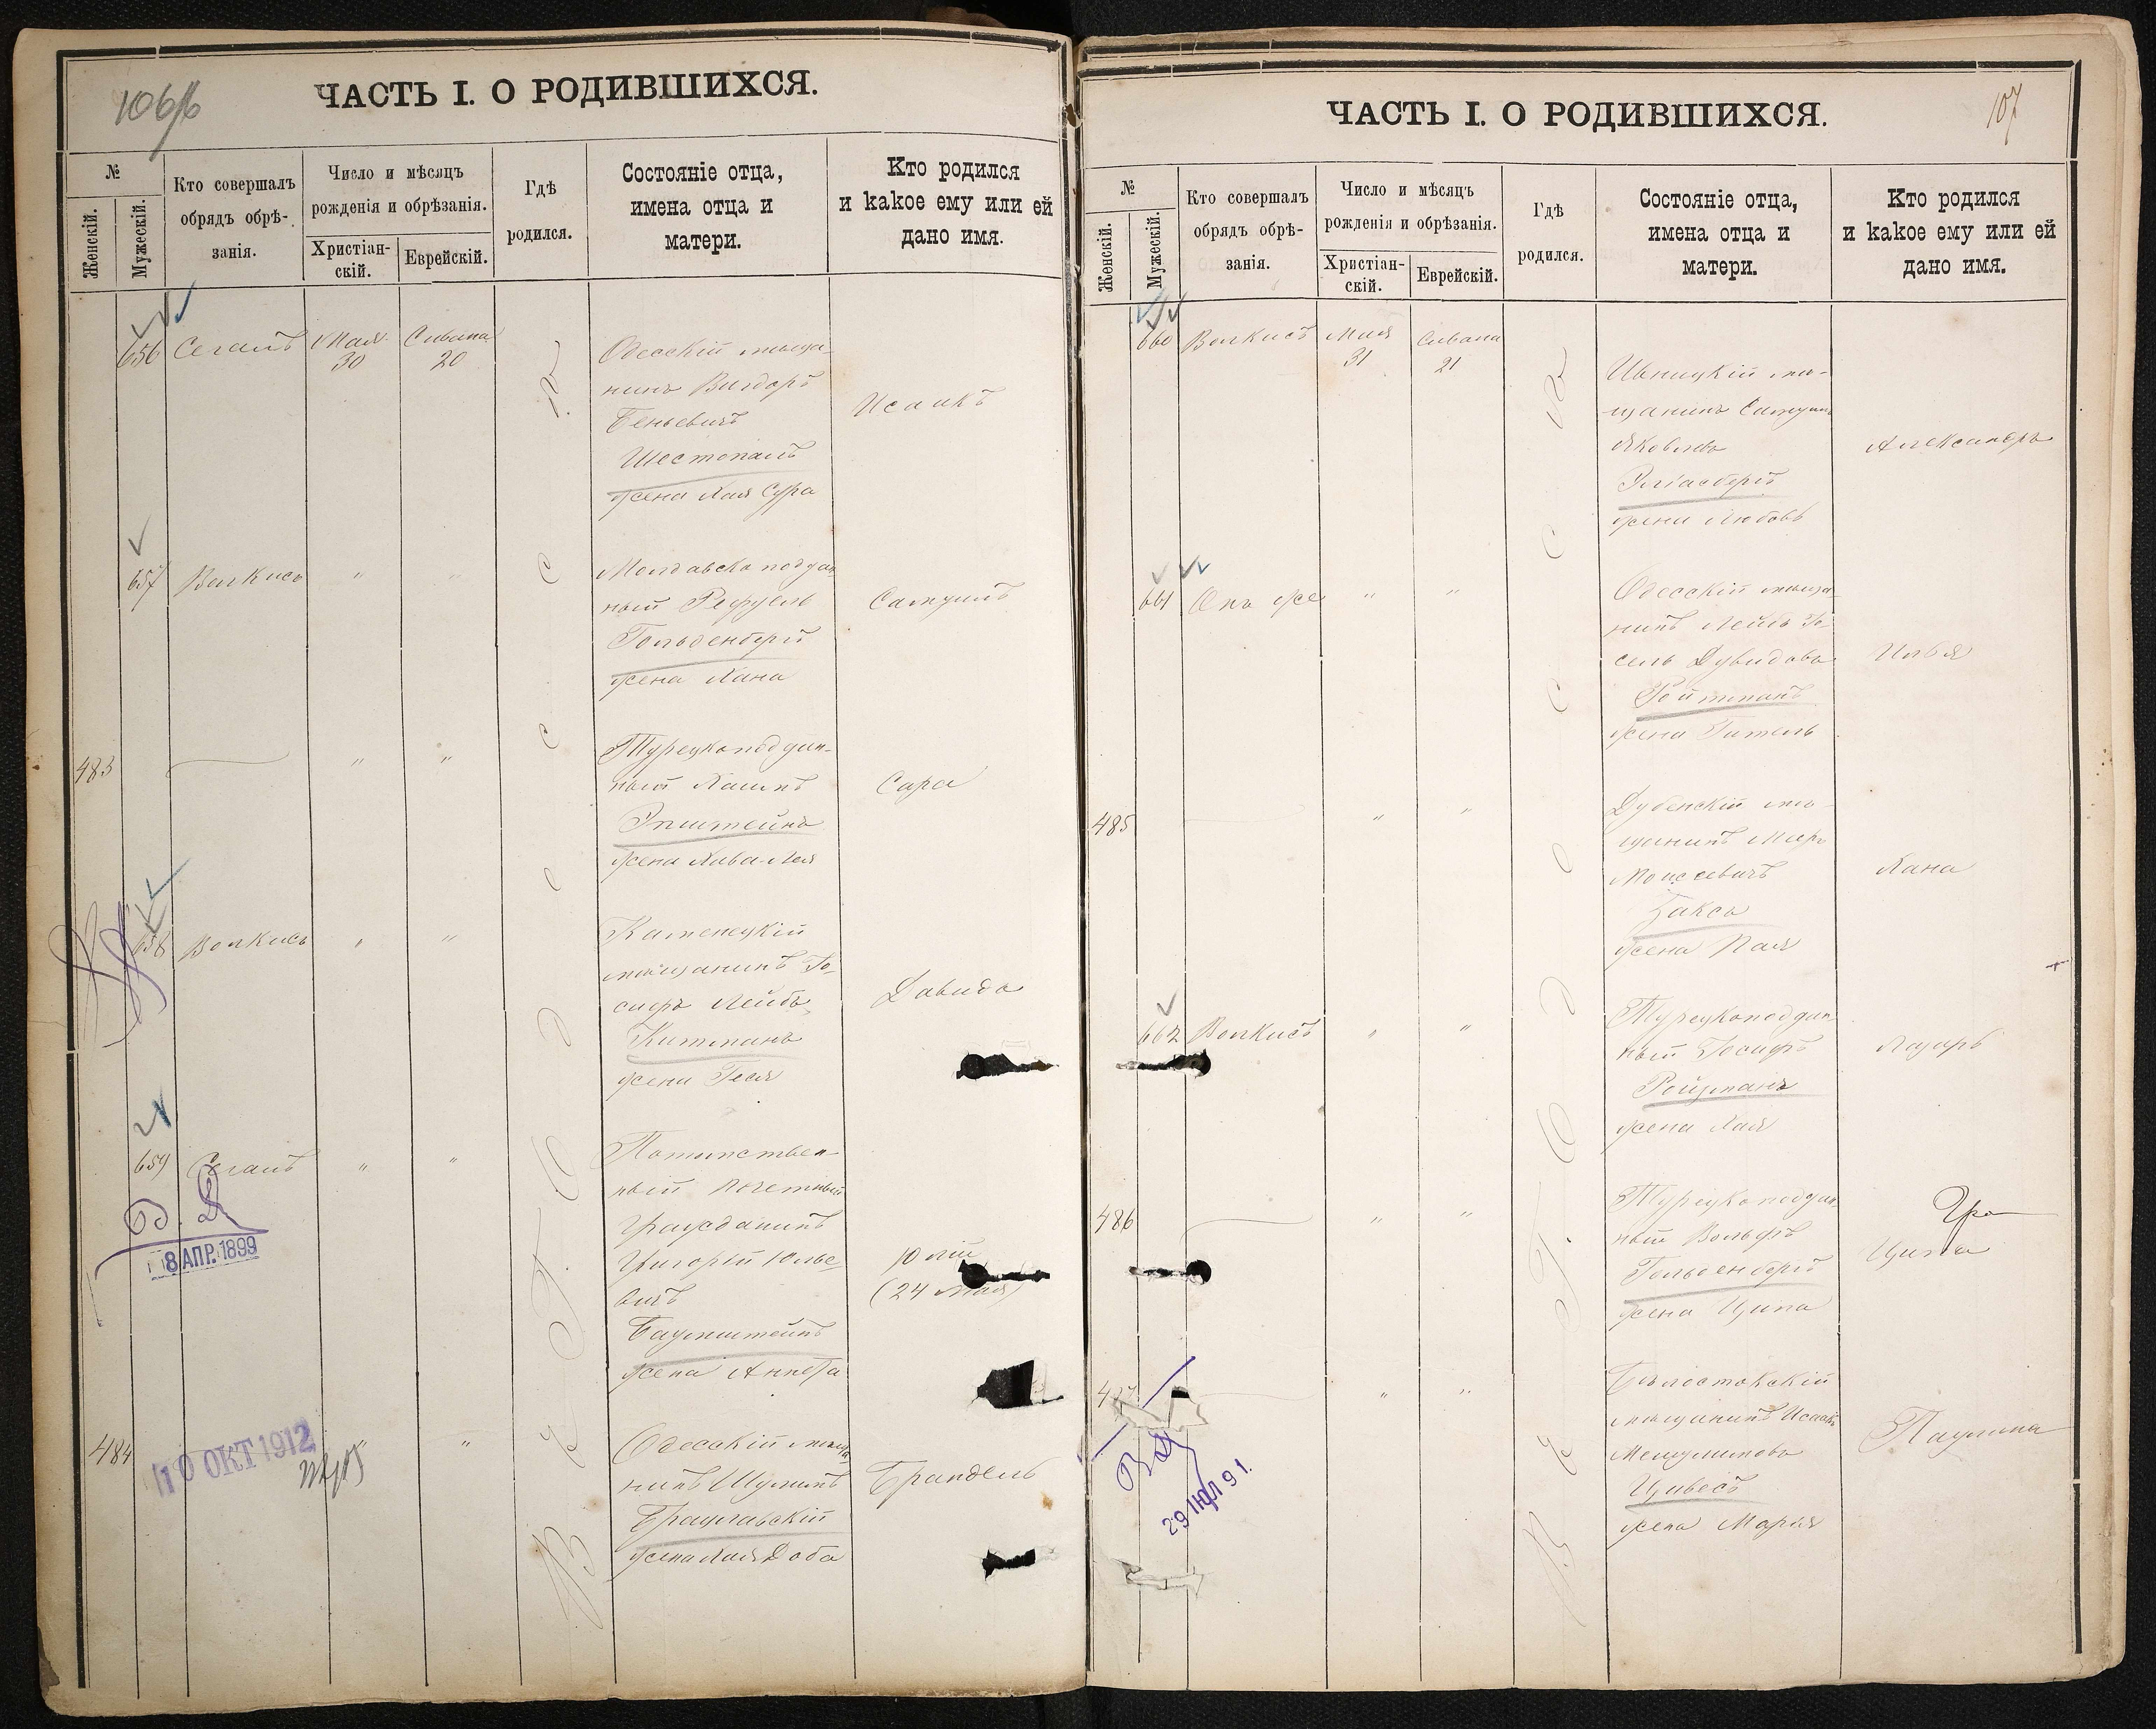 106/б
ЧАСТЬ I. О РОДИВШИХСЯ.
№
Женскій.
Мужескій.
Кто совершалъ
обрядъ обрѣ-
занія.
Число и мѣсяцъ
рожденія и обрѣзанія.
Христіан-
скій.
Еврейскій.
Гдѣ
родился.
Состояніе отца,
имена отца и
матери.
Кто родился
и какое ему или ей
дано имя.
656 Сегалъ Мая 30 Сивана 20
Одесскій мѣща-
нинъ Вигдоръ
Беньевичъ
Шестопалъ
жена Хая Сура
Исаакъ
657 Волкисъ " "
Молдавско поддан-
ный Рефуель
Гольденбергъ
жена Хана
Самуилъ
483 " "
Турецкоподдан-
ный Хаимъ
Эпштейнъ
жена Хива-Лея
Сара
658 Волкисъ " "
Каменецкій
мѣщанинъ Іо-
сифъ Лейбъ
Китманъ
жена Геся
Давидъ
659 Сегалъ " "
Потомствен-
ный почетный
гражданинъ
Григорій Юлье-
вичъ
Баумштейнъ
жена Аннета
Юлій
(24 мая)
8 АПР. 1899
484 " "
Одесскій мѣща-
нинъ Шулимъ
Брацлавскій
жена Хая Доба
Брандель
10 ОКТ 1912
ВЪ Г. ОДЕССѢ
107
ЧАСТЬ I. О РОДИВШИХСЯ.
№
Женскій.
Мужескій.
Кто совершалъ
обрядъ обрѣ-
занія.
Число и мѣсяцъ
рожденія и обрѣзанія.
Христіан-
скій.
Еврейскій.
Гдѣ
родился.
Состояніе отца,
имена отца и
матери.
Кто родился
и какое ему или ей
дано имя.
660 Волкисъ Мая 31 Сивана 21
Ивницкій мѣ-
щанинъ Самуилъ
Яковлевъ
Эліасбергъ
жена Любовь
Александръ
661 Онъ же " "
Одесскій мѣща-
нинъ Лейбъ Іо-
сель Дувидовъ
Ройтманъ
жена Гитель
Илья
485 " "
Дубенскій мѣ-
щанинъ Мееръ
Моисеевичъ
Заксъ
жена Хая
Хана
662 Волкисъ " "
Турецкоподдан-
ный Іосифъ
Ройзманъ
жена Хая
Лазарь
486 " "
Турецкоподдан-
ный Вольфъ
Гольденбергъ
жена Ципа
" "
Бѣлостокскій
мѣщанинъ Исаакъ
Мешулимовъ
Цивесъ
жена Марія
Паулина
ВЪ Г. ОДЕССѢ